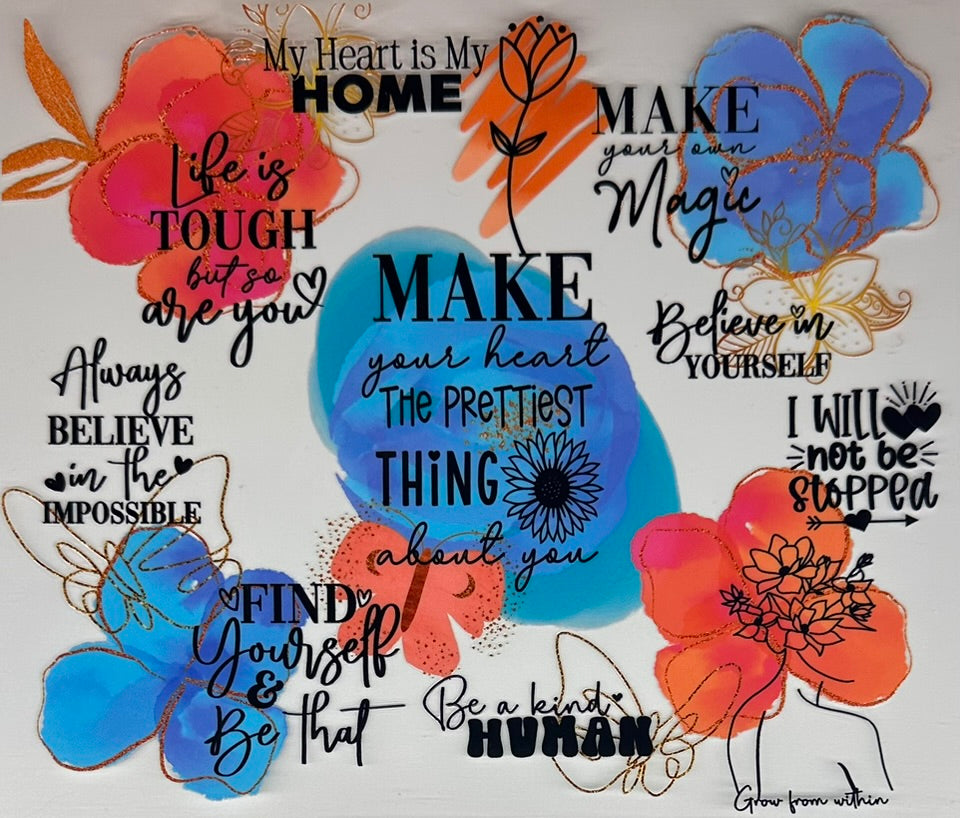 My Heart is My
HOME
MAKE
your own
Magic
Life is
TOUGH
but so
are you
MAKE
your heart
THE PRETTIEST
THING
about you
Believe in
YOURSELF
Always
BELIEVE
in the
IMPOSSIBLE
I WILL
not be
stopped
FIND
Yourself
&
Be that
Be a kind
HUMAN
Grow from within